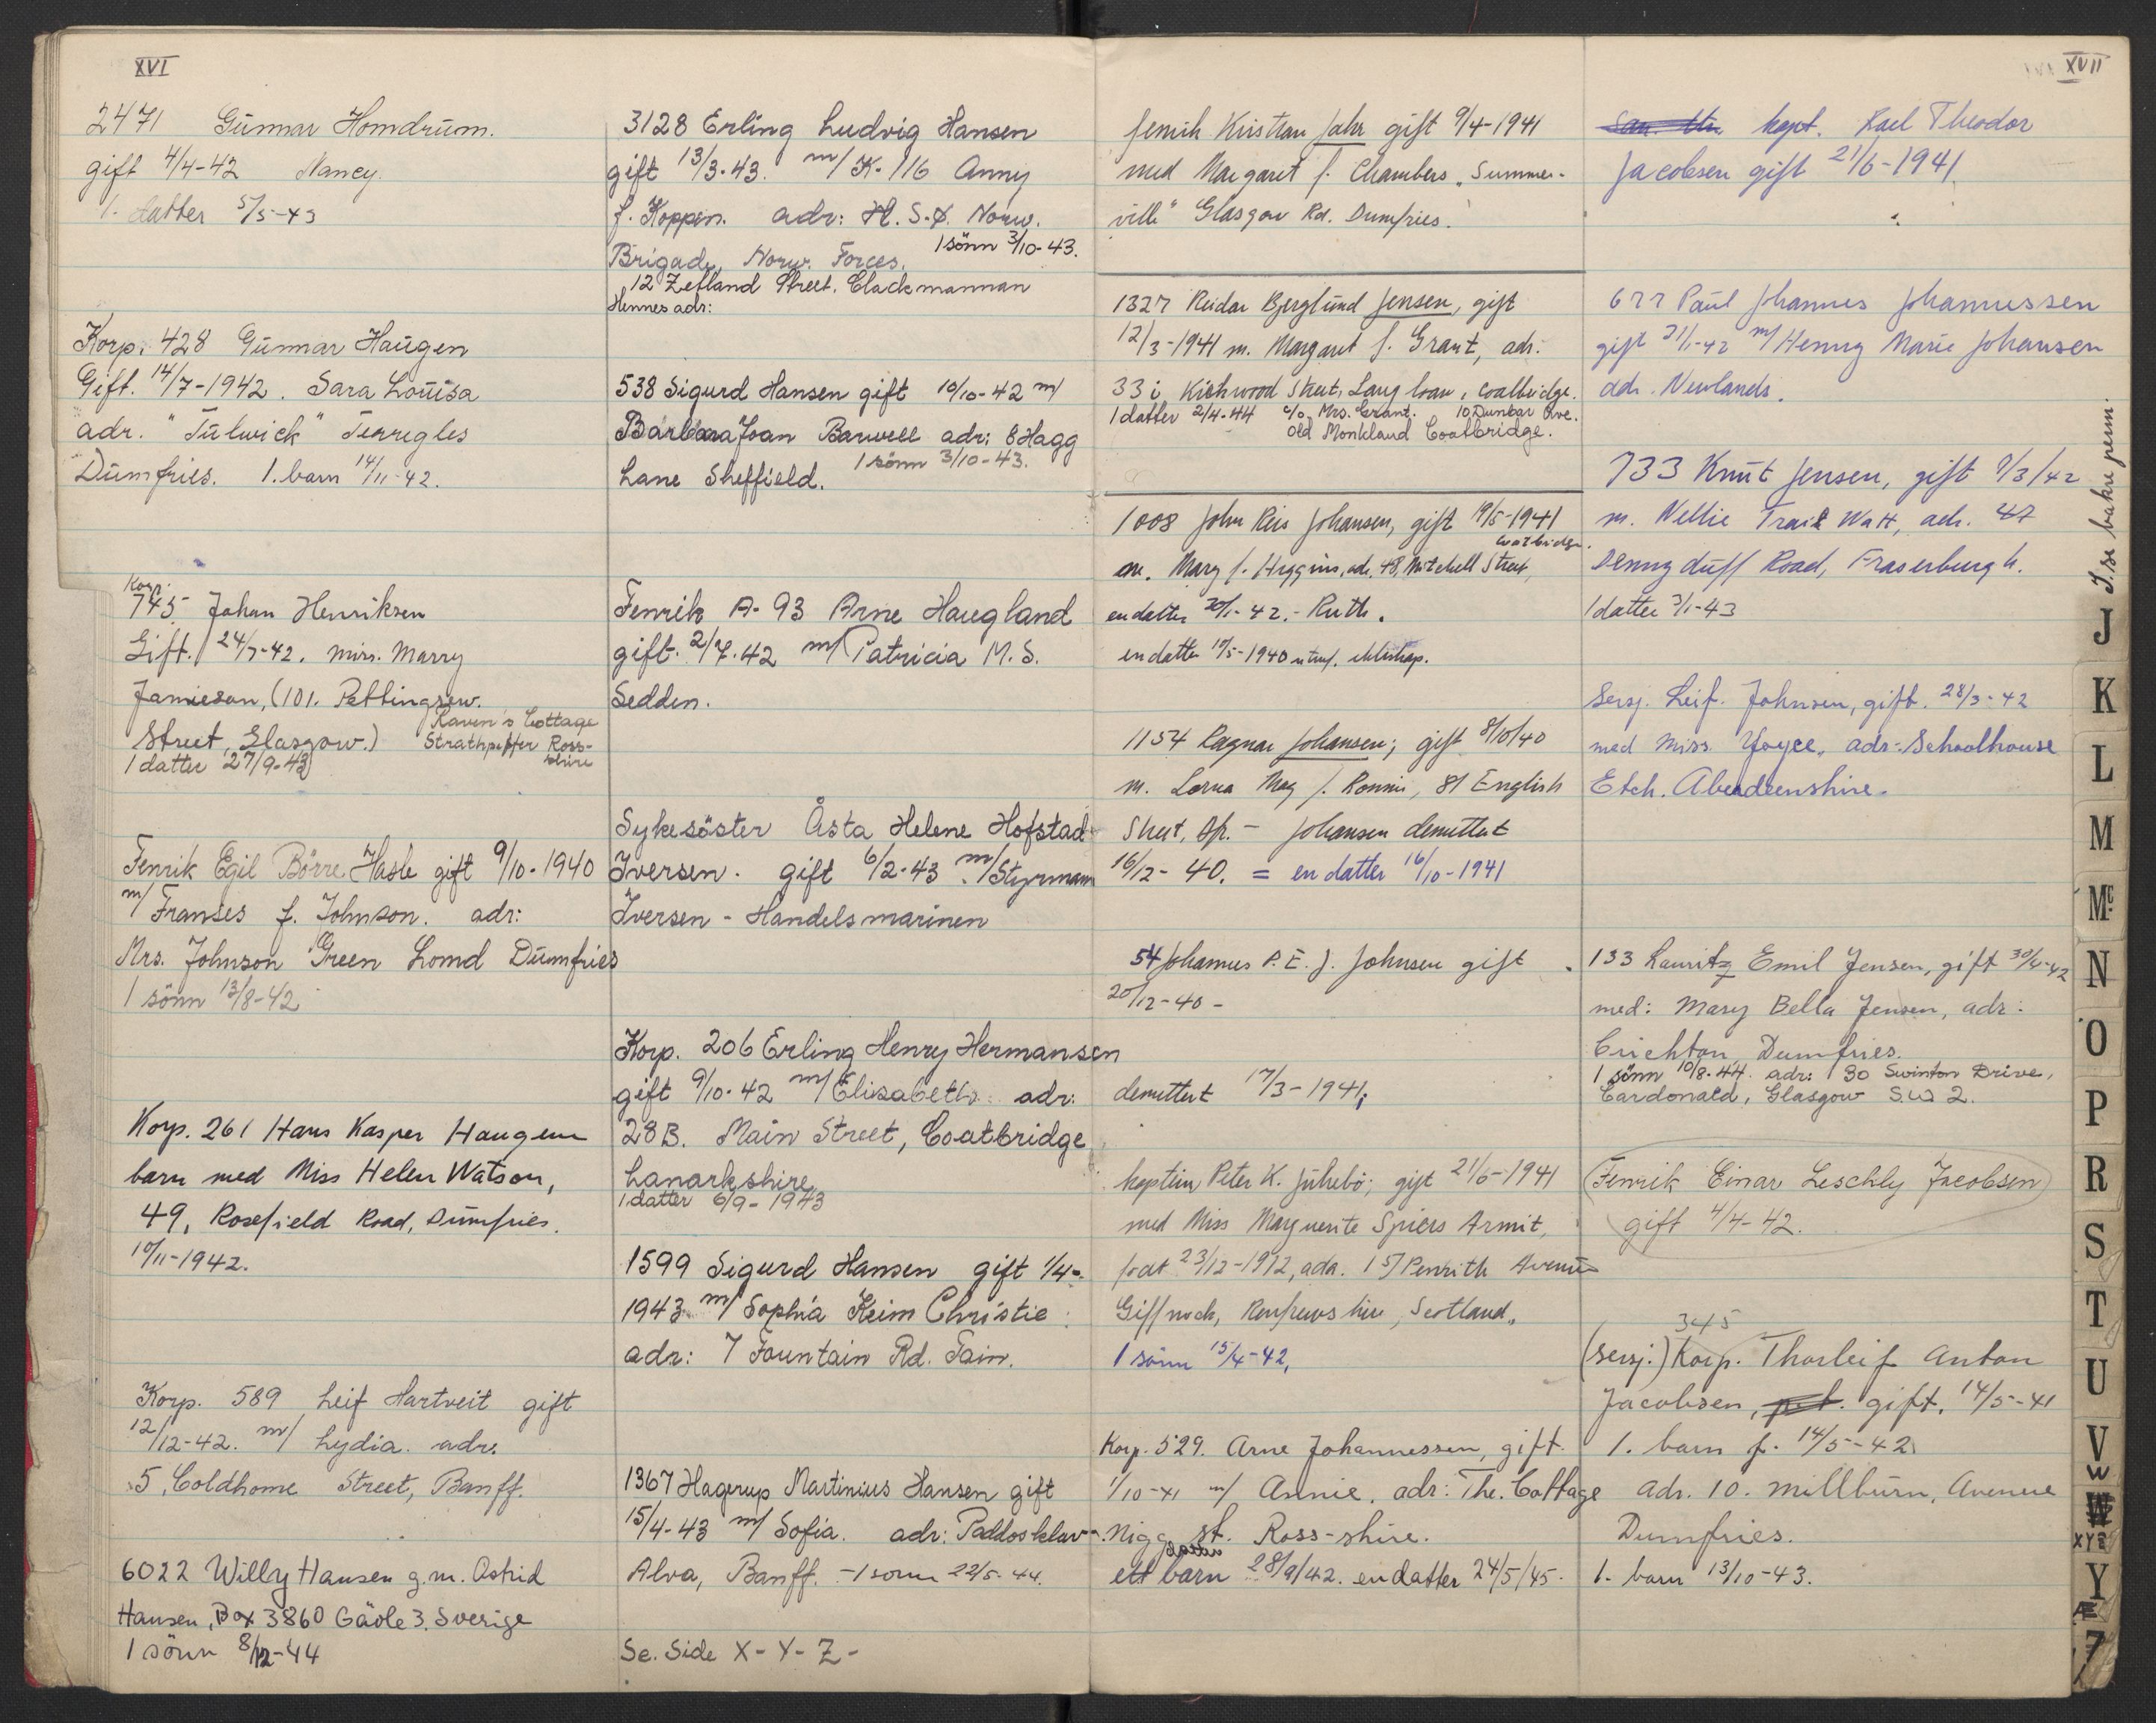 XVI
2471 Gunnar Homdrum.
gift 4/4-42 Nancy.
1. datter 5/5-43
Korp. 428 Gunnar Haugen
Gift. 14/7-1942. Sara Louisa
adr. "Tulwick" Terregles
Dumfries. 1. barn 14/11-42.
Korp.
745 Johan Henriksen
Gift. 24/7-42. miss. Marry
Jamieson, (101. Pettingrew.
Street, Glasgow.)
Raven's Cottage
Strathpeffer Ross-
shire
1 datter 27/9-43
Fenrik Egil Börre Hasle gift 9/10-1940
m/ Franses f. Johnson. adr:
Mrs. Johnson Green Lomd Dumfries
1 sönn 13/8-42
Korp. 261 Hans Kasper Haugen
barn med Miss Helen Watson,
49, Rosefield Road, Dumfries.
10/11-1942.
Korp. 589 Leif Hartveit gift
12/12-42. m/ Lydia. adr.
5, Coldhome Street, Banff.
6022 Willy Hansen g.m. Astrid
Hansen, Box 3860 Gävle 3. Sverige
1 sönn 8/12-44
3128 Erling Ludvig Hansen
gift 13/3-43. m/ K-116 Anny
f. Koppen. adr: H.S.Y. Norw.
Brigade, Norw. Forces. 1 sönn 3/10-43.
12 Zetland Street. Clackmannan
Hennes adr:
538 Sigurd Hansen gift 10/10-42 m/
Barbara Joan Barwell adr: 8 Hagg
Lane Sheffield. 1 sönn 3/10-43.
Fenrik A-93 Arne Haugland
gift. 2/7.42 m/ Patricia M.S.
Sedden.
Sykesöster Åsta Helene Hofstad
Iversen. gift 6/2-43 m/ Styrmann
Iversen - Handelsmarinen
Korp. 206 Erling Henry Hermansen
gift 9/10-42 m/ Elisabeth adr:
28B. Main Street, Coatbridge
Lanarkshire
1 datter 6/9-1943
1599 Sigurd Hansen gift 1/4-
1943 m/ Sophia Keim Christie
adr: 7 Fountain Rd. Tain.
1367 Hagerup Martinius Hansen gift
15/4-43 m/ Sofia. adr: Paddosklav
Alva, Banff. - 1 sonn 22/5-44.
Se. Side X-Y-Z-
XVII
Fenrik Kristian Jahr gift 9/4-1941
med Margaret f. Chambers "Summer-
ville" Glasgow Rd. Dumfries.
1327 Reidar Bjerglund Jensen, gift
12/3-1941 m. Margaret f. Grant, adr.
33 i Kirkwood Street, Langloan, Coatbridge.
1 datter 2/4-44 c/o Mrs. Grant. 10 Dunbar Ave.
Old Monkland Coatbridge.
1008 John Reis Johansen, gift 19/5-1941
Coatbridge.
m. Mary f. Higgins, adr. 48, Mitchell Street,
en datter 20/1-42. - Ruth.
en datter 17/5-1940 utenf. ekteskap.
1154 Ragnar Johansen; gift 8/10/40
m. Lorna May f. Ronnie, 81 English
Street, Df. - Johansen demittert
16/12-40. = en datter 16/10-1941
54 Johannes P. E. J. Johnsen gift
20/12-40 -
demittert 17/3-1941;
kaptein Peter K. Julhebö; gift 21/6-1941
med Miss Marguerite Spiers Armit,
födt 23/12-1912, adr. 157 Penrith Avenue
Giffnock, Renfrewshire, Scotland.
1 sönn 15/4-42,
Korp. 529. Arne Johannessen, gift.
1/10-41 m/ Annie. adr: The. Cottage
Nigg st. Ross-shire.
ett barn 28/9/42. en datter 24/5/45.
kapt. Karl Theodor
Jacobsen gift 21/6-1941
677 Paul Johannes Johannessen
gift 31/1-42 m/ Henny Marie Johansen
adr. Newlands.
733 Knut Jensen, gift 7/3/42
m. Nellie Trail Watt, adr. 47
Dennyduff Road, Fraserburgh.
1 datter 3/1-43
Sersj. Leif. Johnsen, gift. 28/3-42
med miss. Joyce. adr: Schoolhouse
Etch. Aberdeenshire.
133 Lauritz Emil Jensen, gift 30/4-42
med: Mary Bella Jensen, adr:
Crichton, Dumfries.
1 sönn 10/8-44. adr: 30 Swinton Drive,
Cardonald, Glasgow S.W 2.
Fenrik Einar Leschly Jacobsen
gift 4/4-42.
345
(sersj.) Korp. Thorleif Anton
Jacobsen, gift. 14/5-41
1. barn f. 14/5-42
adr. 10. millburn, Avenue
Dumfries.
1. barn 13/10-43.
J. se bakre perm.
J
K
L
M
Mc
N
O
P
R
S
T
U
V
W
W
XYZ
Y
Æ
Z